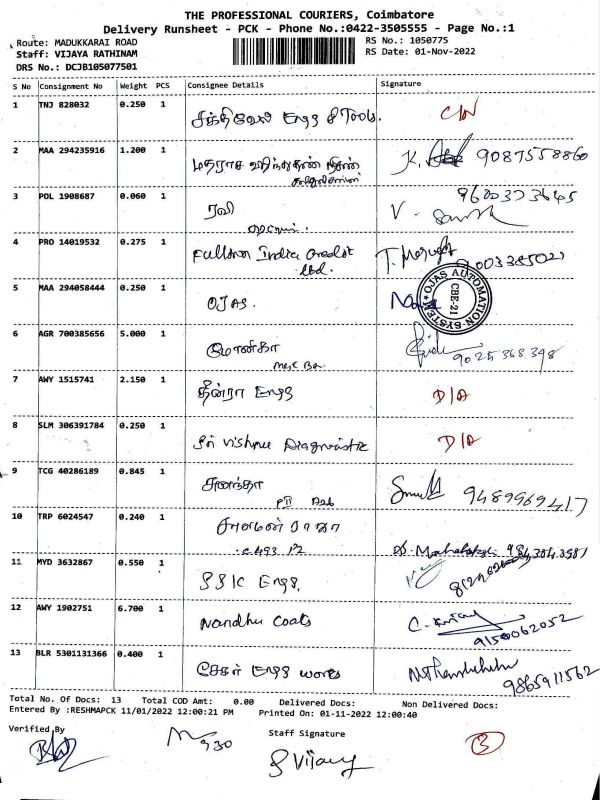 THE PROFESSIONAL COURIERS, Coimbatore
Delivery Runsheet - PCK - Phone No.:0422-3505555 - Page No.:1
Route: MADUKKARAI ROAD RS No.: 1050775
Staff: VIJAYA RATHINAM RS Date: 01-Nov-2022
DRS No.: DCJB105077501
S No Consignment No Weight PCS Consignee Details Signature
1 TNJ 828032 0.250 1 சக்திவேல் Engg & Tools.
2 MAA 294235916 1.200 1 K. 9087558860
3 POL 1908687 0.060 1 ரவி V.
4 PRO 14019532 0.275 1 Fullerton India Credit
Ltd.
5 MAA 294058444 0.250 1 OJAS. OJAS AUTOMATION SYSTEM CBE-21
6 AGR 700385656 5.000 1 மோனிகா 9025368398
7 AWY 1515741 2.150 1 Engg D/A
8 SLM 306391784 0.250 1 Sri Vishnu Diagnostic D/A
9 TCG 40286189 0.845 1 9489969417
10 TRP 6024547 0.240 1 சாலமன் ராஜா
11 MYD 3632867 0.550 1 SSK Engg.
12 AWY 1902751 6.700 1 Nandhu Coats
9150062052
13 BLR 5301131366 0.400 1 சேகர் Engg works
9865911562
Total No. Of Docs: 13 Total COD Amt: 0.00 Delivered Docs: Non Delivered Docs:
Entered By :RESHMAPCK 11/01/2022 12:00:21 PM Printed On: 01-11-2022 12:00:40
Verified By Staff Signature
930 3
S Vijay